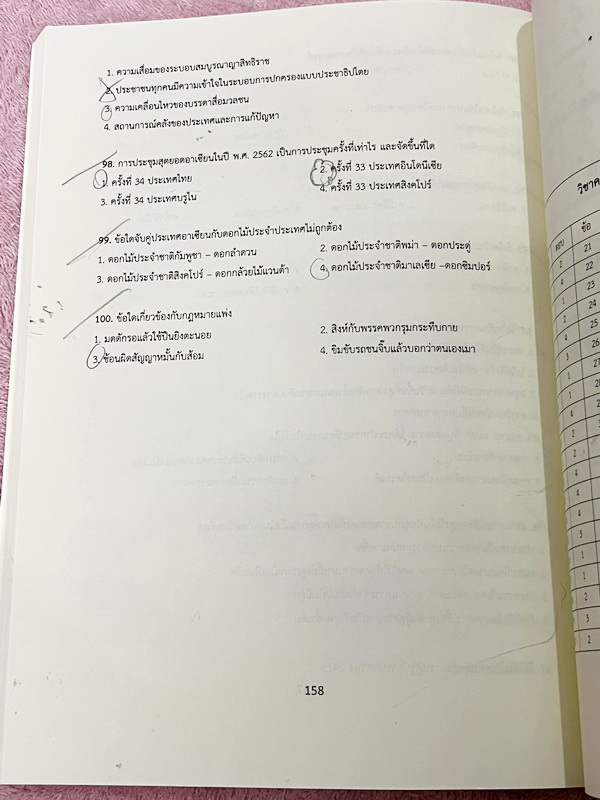 1. ความเสื่อมของระบอบสมบูรณาญาสิทธิราช
2. ประชาชนทุกคนมีความเข้าใจในระบอบการปกครองแบบประชาธิปไตย
3. ความเคลื่อนไหวของบรรดาสื่อมวลชน
4. สถานการณ์คลังของประเทศและการแก้ปัญหา
98. การประชุมสุดยอดอาเซียนในปี พ.ศ. 2562 เป็นการประชุมครั้งที่เท่าไร และจัดขึ้นที่ใด
1. ครั้งที่ 34 ประเทศไทย 2. ครั้งที่ 33 ประเทศอินโดนีเซีย
3. ครั้งที่ 34 ประเทศบรูไน 4. ครั้งที่ 33 ประเทศสิงคโปร์
99. ข้อใดจับคู่ประเทศอาเซียนกับดอกไม้ประจำประเทศไม่ถูกต้อง
1. ดอกไม้ประจำชาติกัมพูชา – ดอกลำดวน 2. ดอกไม้ประจำชาติพม่า – ดอกประดู่
3. ดอกไม้ประจำชาติสิงคโปร์ – ดอกกล้วยไม้แวนด้า 4. ดอกไม้ประจำชาติมาเลเซีย -ดอกซิมปอร์
100. ข้อใดเกี่ยวข้องกับกฎหมายแพ่ง
1. มดดักรอแล้วใช้ปืนยิงตะนอย 2. สิงห์กับพรรคพวกรุมกระทืบกาย
3. ช้อนผิดสัญญาหมั้นกับส้อม 4. ขิมขับรถชนจิ๊บแล้วบอกว่าตนเองเมา
158
วิชาค
ตอบ ข้อ
2 21
4 22
1 23
2 24
4 25
3 26
1 27
1 28